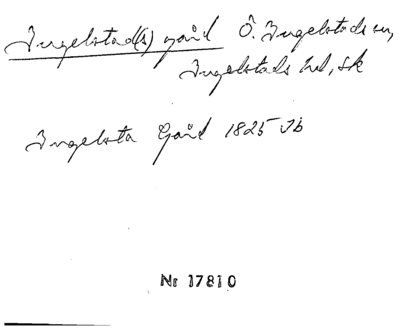 Ingelstad(s) gård Ö. Ingelstads sn,
Ingelstads hd, Sk
Ingelsta Gård 1825 Jb
Nr 17810